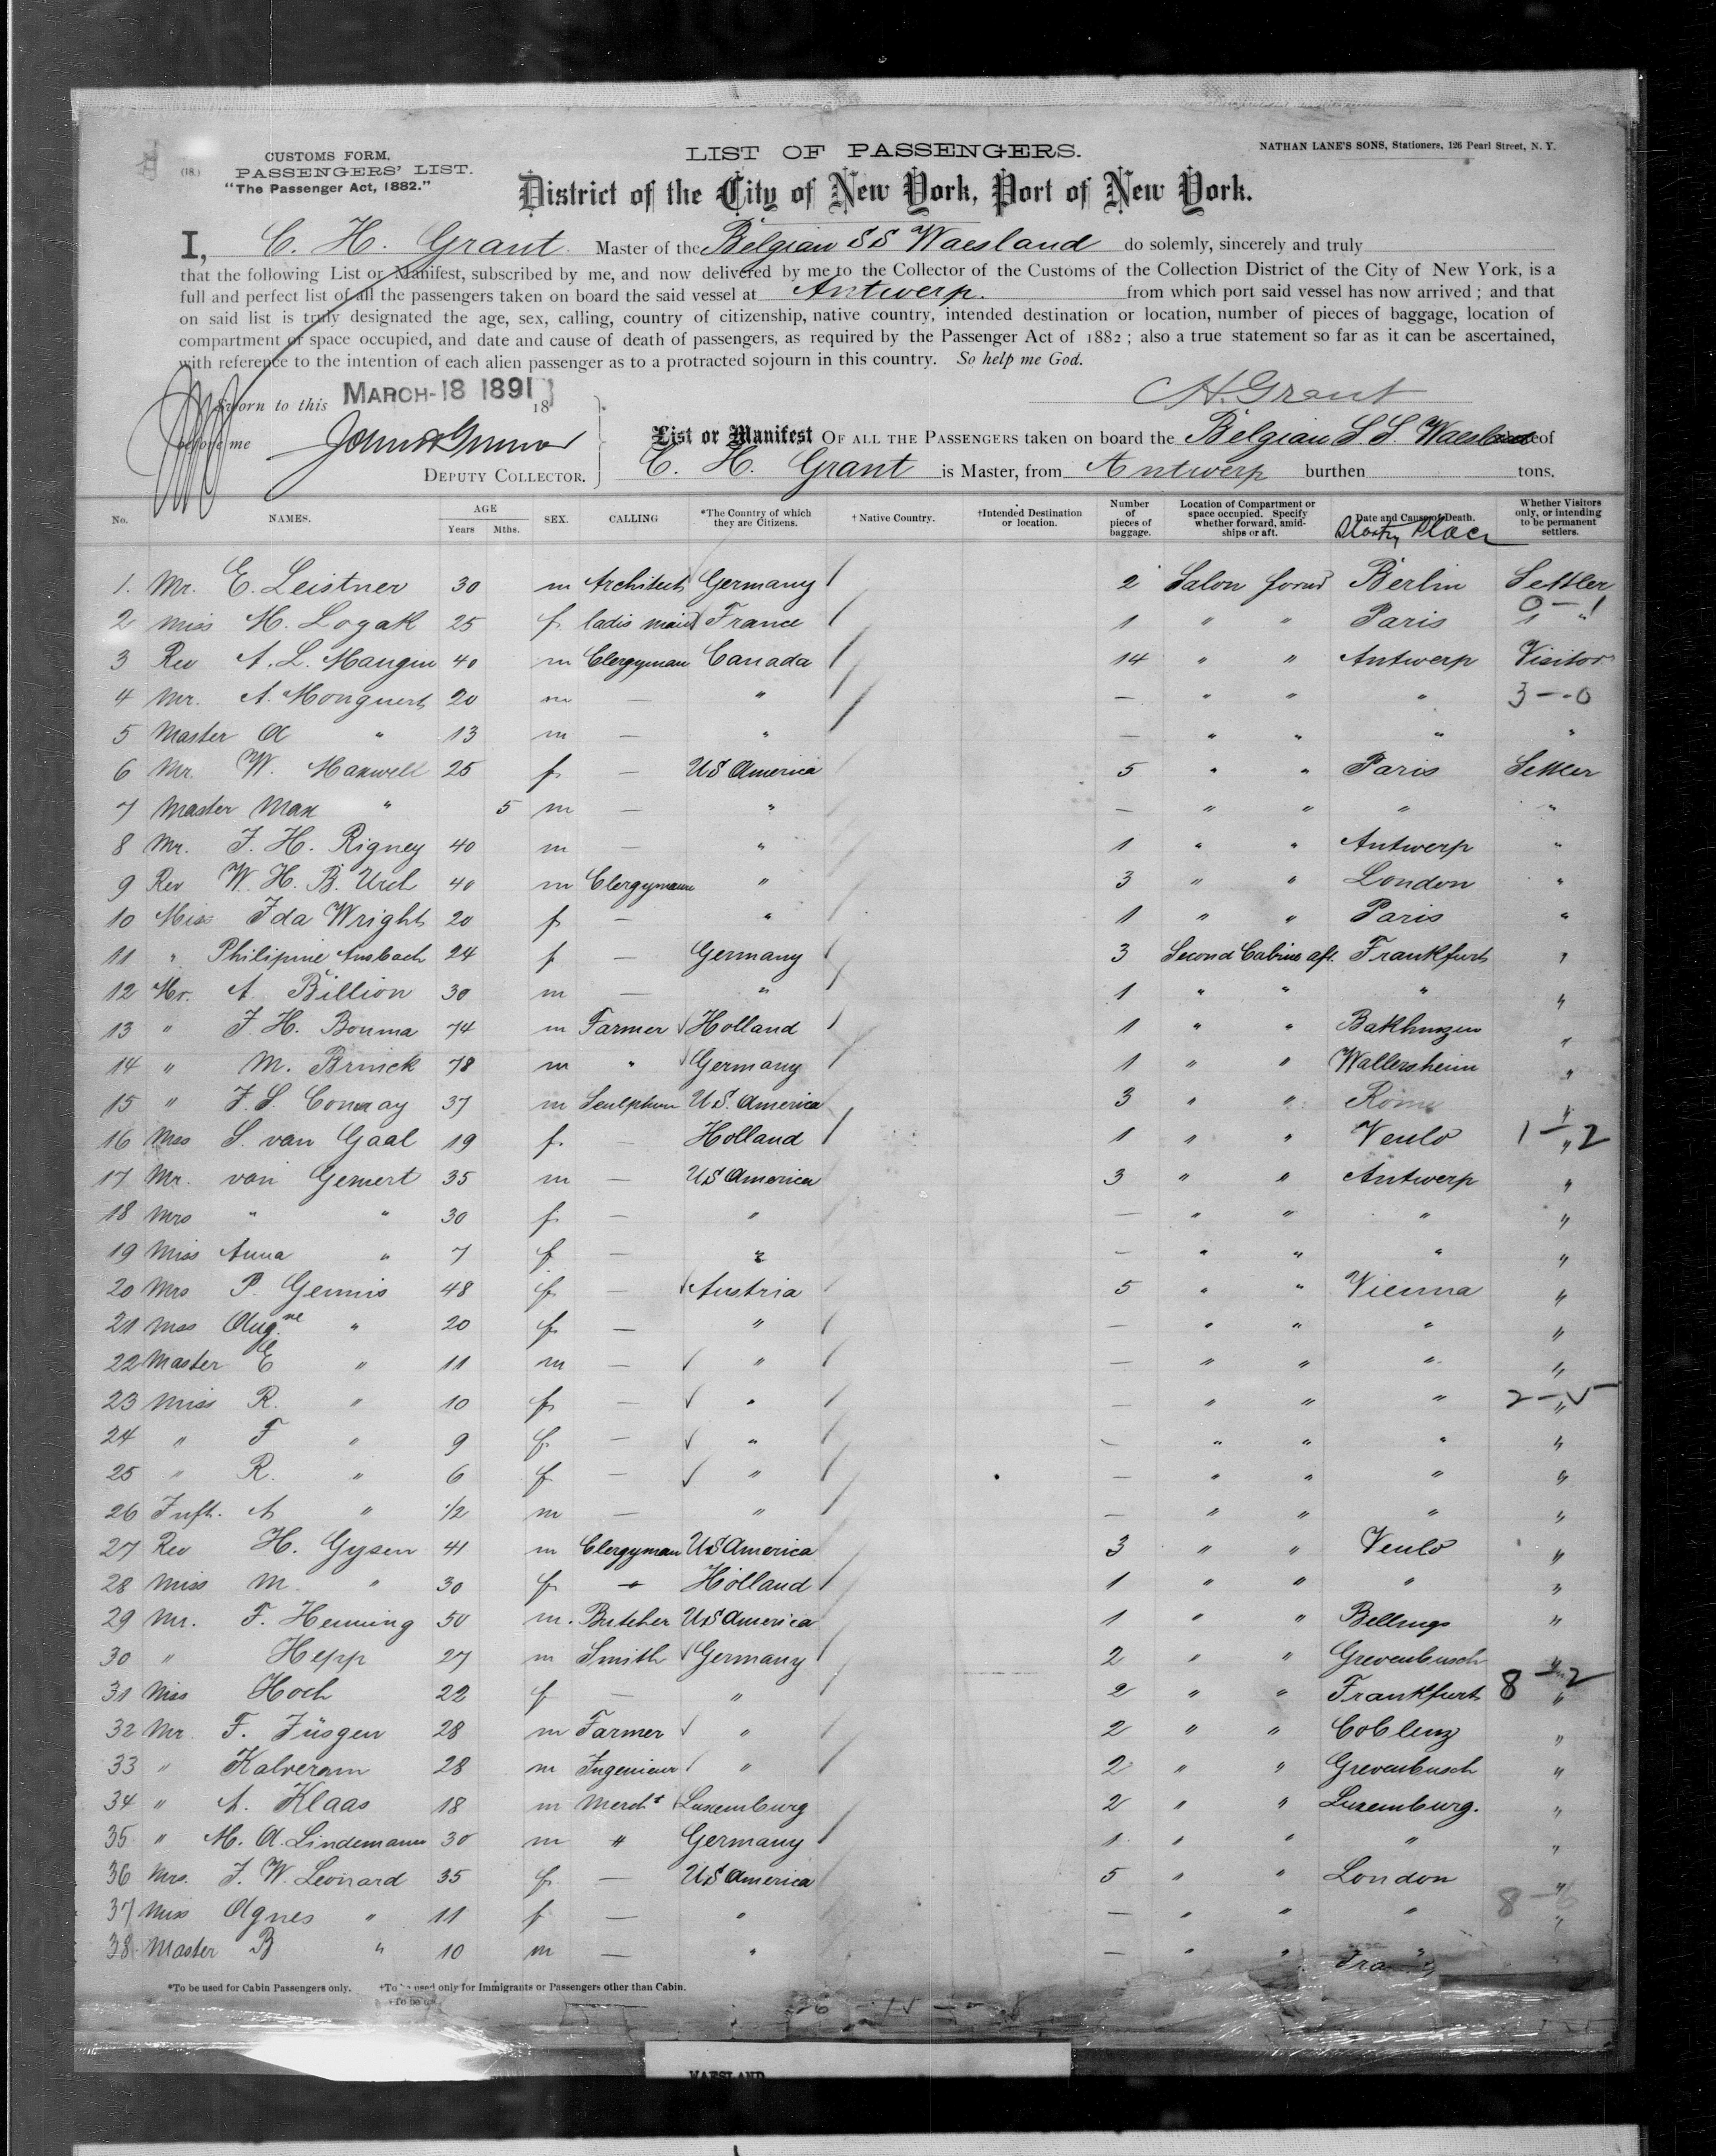 (18.)
CUSTOMS FORM,
PASSENGERS' LIST.
"The Passenger Act, 1882."
LIST OF PASSENGERS.
NATHAN LANE'S SONS, Stationers, 126 Pearl Street, N. Y.
District of the City of New York, Port of New York.
I, C. H. Grant Master of the Belgian SS Waesland do solemly, sincerely and truly
that the following List or Manifest, subscribed by me, and now delivered by me to the Collector of the Customs of the Collection District of the City of New York, is a
full and perfect list of all the passengers taken on board the said vessel at Antwerp. from which port said vessel has now arrived ; and that
on said list is truly designated the age, sex, calling, country of citizenship, native country, intended destination or location, number of pieces of baggage, location of
compartment or space occupied, and date and cause of death of passengers, as required by the Passenger Act of 1882 ; also a true statement so far as it can be ascertained,
with reference to the intention of each alien passenger as to a protracted sojourn in this country. So help me God.
Sworn to this MARCH-18 1891 18
CH. Grant
before me
DEPUTY COLLECTOR.
List or Manifest OF ALL THE PASSENGERS taken on board the Belgian S.S. Waesland of
C. H. Grant is Master, from Antwerp burthen tons.
No. NAMES. AGE Years Mths. SEX. CALLING *The Country of which they are Citizens. † Native Country. †Intended Destination or location. Number of pieces of baggage. Location of Compartment or space occupied. Specify whether forward, amid-ships or aft. Date and Cause of Death. Place Whether Visitors only, or intending to be permanent settlers.
1. Mr. E. Leistner 30 m Architect Germany / 2 Salon forwd Berlin Settler
2 Miss M. Logak 25 f ladis maid France / 1 " " Paris " 0-1
3 Rev A. L. Mangin 40 m Clergyman Canada / 14 " " Antwerp Visitor
4 Mr. A. 20 m — " / — " " " 3-0
5 Master A " 13 m — " — " " " "
6 Mr. W. Maxwell 25 f — US America 5 " " Paris Settler
7 Master Max " 5 m — " — " " " "
8 Mr. J. H. Rigney 40 m — " 1 " " Antwerp "
9 Rev W. H. B. Urch 40 m Clergyman " 3 " " London "
10 Miss Ida Wright 20 f — " 1 " " Paris "
11 " Philipine Ansbach 24 f — Germany / 3 Second Cabine aft. Frankfurt "
12 Mr. A. Billion 30 m — " / 1 " " " "
13 " J. H. Bouma 74 m Farmer Holland / 1 " " Bakhuizen "
14 " M. Brinck 78 m " Germany / 1 " " Wallersheim "
15 " J. S. Conway 37 m Sculpteur U.S. America 3 " " Rome "
16 Miss S. van Gaal 19 f. — Holland / 1 " " Venlo " 1-2
17 Mr. van Gemert 35 m — US America 3 " " Antwerp "
18 Mrs " " 30 f — " — " " " "
19 Miss Anna " 7 f — " — " " " "
20 Mrs P. Gennis 48 f — Austria / 5 " " Vienna "
21 Miss Augne " 20 f — " / — " " " "
22 Master E " 11 m — " / — " " " "
23 Miss R. " 10 f — " / — " " " " 2-5
24 " F " 9 f — " / — " " " "
25 " R. " 6 f — " / — " " " "
26 Inft. A " 1/2 m — " / — " " " "
27 Rev H. Gysen 41 m Clergyman US America 3 " " Venlo "
28 Miss M. " 30 f — Holland / 1 " " " "
29 Mr. F. Henning 50 m. Butcher US America 1 " " Bellings "
30 " Hepp 27 m Smith Germany / 2 " " Grevenbusch "
31 Miss Hoch 22 f — " / 2 " " Frankfurt " 8-2
32 Mr. F. Füsgen 28 m Farmer " / 2 " " Coblenz "
33 " Kalveram 28 m Ingenieur " / 2 " " Grevenbusch "
34 " A. Klaas 18 m Mercht Luxemburg 2 " " Luxemburg. "
35 " M. A. Lindemann 30 m " Germany / 1 " " " "
36 Mrs. J. W. Leonard 35 f — US America 5 " " London "
37 Miss Agnes " 11 f — " — " " " " 8-6
38. Master B " 10 m — " — " " "
*To be used for Cabin Passengers only. †To be used only for Immigrants or Passengers other than Cabin.
WAESLAND